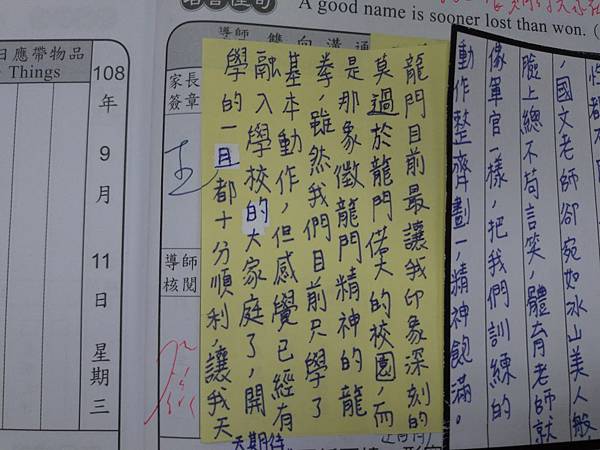 A good name is sooner lost than won.
，國文老師卻宛如冰山美人般
臉上總不苟言笑，體育老師就
像軍官一樣，把我們訓練的
動作整齊劃一，精神飽滿。
導師 雙向溝通
龍門目前最讓我印象深刻的
莫過於龍門偌大的校園，而
是那象徵龍門精神的龍
拳，雖然我們目前只學了
基本動作，但感覺已經有
融入學校的大家庭了，開
學的一月，都十分順利，讓我天
天期待
家長
簽章
導師
核閱
108年9月11日 星期三
日應帶物品
Things